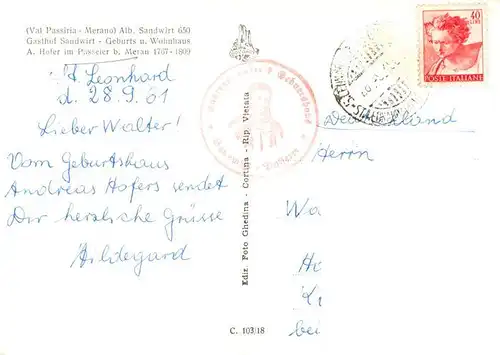 (Val Passiria - Merano) Alb. Sandwirt 650
Gasthof Sandwirt - Geburts u. Wohnhaus
A. Hofer im Passeier b. Meran 1767-1809
St. Leonhard
d. 28.9.61
Lieber Walter!
Vom Geburtshaus
Andreas Hofers sendet
Dir herzliche Grüsse
Hildegard
Ediz. Foto Ghedina - Cortina - Rip. Vietata
C. 103/18
40
LIRE
POSTE ITALIANE
Deutschland
Herrn
Wa
Ho
Kr
bei